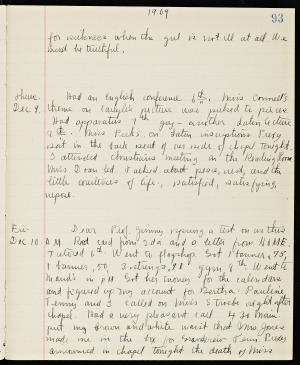 1909
93
for sickness when the girl is not ill at all. We
must be truthful.
Thurs. Had an English conference 6th. Miss Connell's
Dec. 9. theme on English picture was picked to pieces.
Had apparatus 7th gym - another Latin lecture
8th. Miss Pecks. on Latin inscriptions Prexy
sat in the back seat of our side of chapel tonight.
I attended Christians meeting in the Reading Room
Miss led. Talked about peace, rest, and the
little courtesies of life, satisfied, satisfying,
repose.
Fri- Dear Prof. Jenny springing a test on us this
Dec. 10. A.M. Rec'd card from Ida and a letter from HOME.
Tutored 6th. Went to
1 banner, 50, 2 strings, gym 8th Went to
Maude's in P.M. Got her money for the calendars
and figured up my account for Bertha. Pauline
Fanny and I called on Miss right after
chapel. Had a very pleasant call 4 30 Main
put my brown and white waist that Mrs. Jones
made me in the box for Grandview Tenn. Prexy
announced in chapel tonight the death of Miss